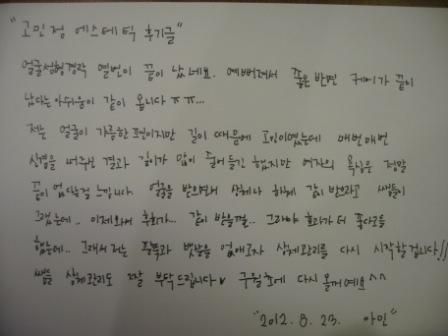 "고민정 에스테틱 후기글"
얼굴성형경락 열번이 끝이 났네요. 예뻐져서 좋은 반면 케어가 끝이
났다는 아쉬움이 같이 옵니다 ㅠㅠ...
저는 얼굴이 갸름한 편이지만 길이 때문에 고민이였는데 매번매번
신경을 써주신 결과 길이가 많이 줄어들긴 했지만 여자의 욕심은 정말
끝이 없다는걸 느낍니다. 얼굴을 받으면서 상체나 하체 같이 받으라고 쌤들이
그랬는데.. 이제와서 후회가... 같이 받을껄.. 그래야 효과가 더 좋다고들
했는데.. 그래서 저는 팔뚝과 뱃살을 없애고자 상체관리를 다시 시작할겁니다!!
쌤들 상체관리도 잘 부탁드립니다♥ 구월초에 다시 올께예요^^
"2012. 8. 23. 아민"